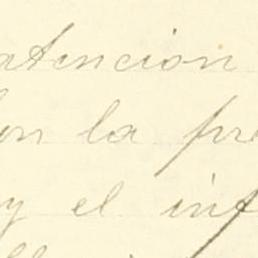 atencion
on la pre
y el inf